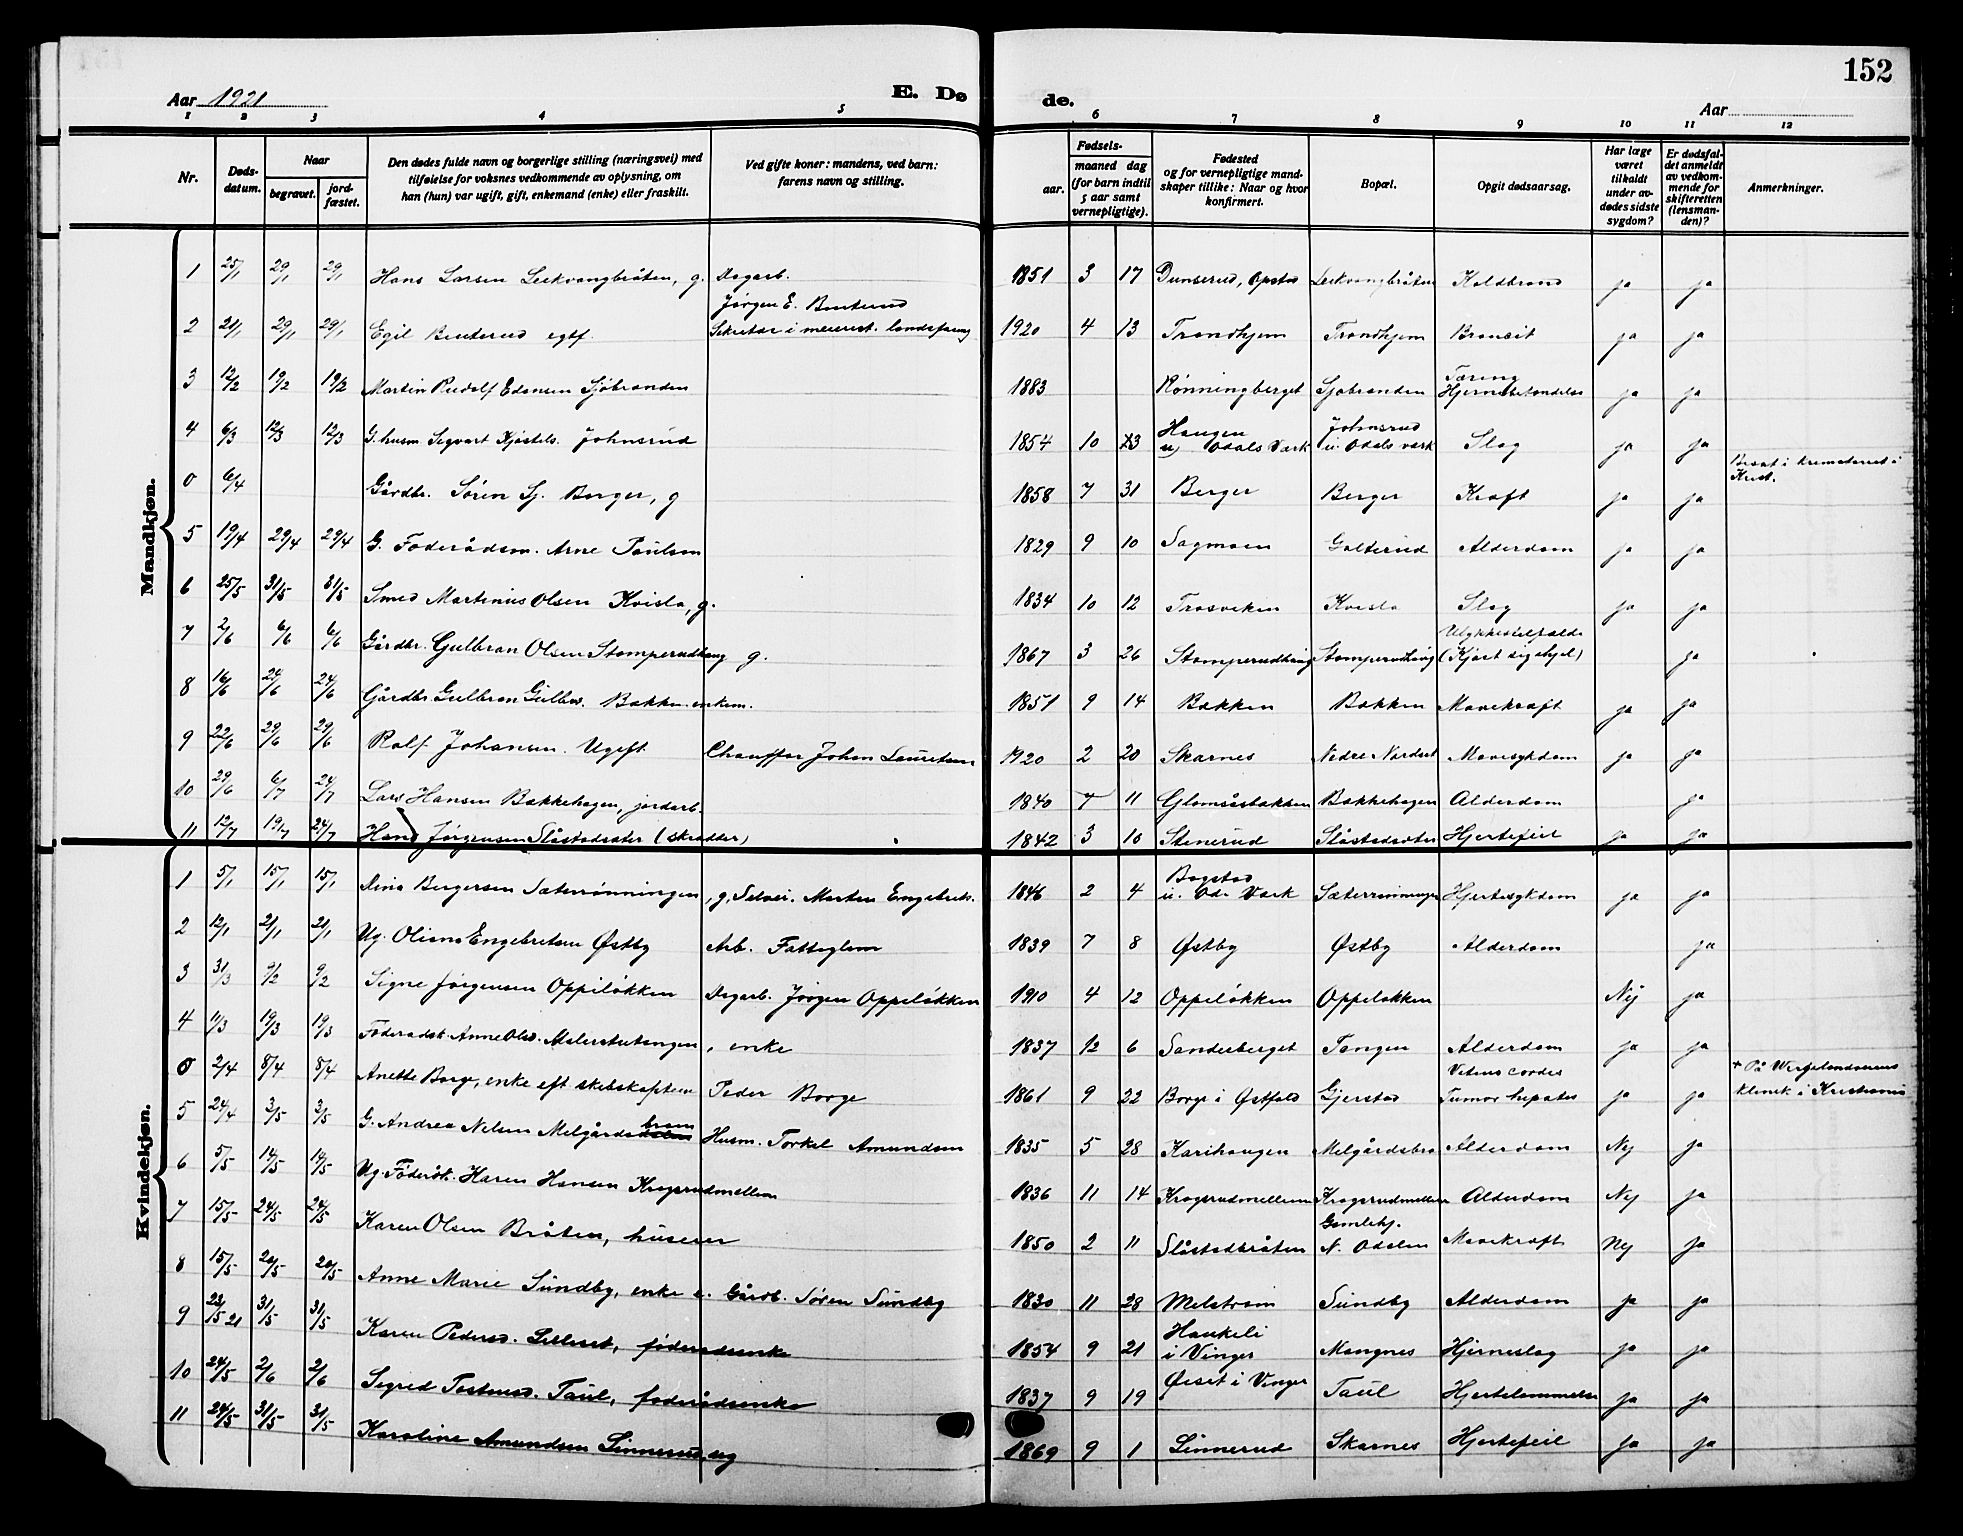 152
Aar 1921
E. Dø
de.
Aar
1 2 3 4 5 6 7 8 9 10 11 12
Nr.
Døds-
datum.
Naar
begravet.
jord-
fæstet.
Den dødes fulde navn og borgerlige stilling (næringsvei) med
tilføielse for voksnes vedkommende av oplysning, om
han (hun) var ugift, gift, enkemand (enke) eller fraskilt.
Ved gifte koner: mandens, ved barn:
farens navn og stilling.
Fødsels-
aar.
maaned dag
(for barn indtil
5 aar samt
vernepligtige).
Fødested
og for vernepligtige mand-
skaper tillike: Naar og hvor
konfirmert.
Bopæl.
Opgit dødsaarsag.
Har læge
været
tilkaldt
under av-
dødes sidste
sygdom?
Er dødsfal-
det anmeldt
av vedkom-
mende for
skifteretten
(lensman-
den)?
Anmerkninger.
Mandkjøn.
1 25/1 29/1 29/1 Hans Larsen Leekvangbråten, g. Dagarb. 1851 3 17 Gunserud, Opstad Leekvangbråten Koldbrand ja ja
Jørgen E. Benterud
2 21/1 29/1 29/1 Egil Benterud egtf. Sekretær i meierist. landsforeng 1920 4 13 Trondhjem Trondhjem Broncit ja ja
Tæring
3 12/2 19/2 19/2 Martin Rudolf Edensen Sjøbranden 1883 Rønningberget Sjøbranden Hjernebetændelse ja ja
Haugen Johnsrud
4 6/3 12/3 12/3 G. husm. Segvart Kjøstels. Johnsrud 1854 10 23 u. Odals Værk u. Odals værk Slag ja ja
Brænt i krematoriet i
Krist.
0 6/4 Gårdbr. Søren Sj. Berger, g 1858 7 31 Berger Berger Kræft ja ja
5 19/4 29/4 29/4 G. Føderådsm. Arne Paulsen 1829 9 10 Sagmoen Galterud Alderdom ja ja
6 25/5 31/5 31/5 Smed Martinius Olsen Kvisla, g. 1834 10 12 Trosviken Kvisla Slag ja ja
Ulykkestilfælde
7 2/6 6/6 6/6 Gårdbr. Gulbran Olsen Stomperudhaug g. 1867 3 26 Stomperudhaug Stomperudhaug (Kjørt sig ihjel) ja
8 16/6 24/6 24/6 Gårdbr Gulbran Gulbr. Bakken enkem. 1851 9 14 Bakken Bakken Mavekræft ja ja
9 22/6 29/6 29/6 Rolf Johansen. Ugift Chauffør Johan Lauritsen 1920 2 20 Skarnes Nedre Nordset Mavesykdom ja ja
10 29/6 6/7 24/7 Lars Hansen Bakkehagen, jordarb. 1840 7 11 Glomsåsbakken Bakkehagen Alderdom ja
11 12/7 19/7 24/7 Hans Jørgensen Slåstadsæter (skrædder) 1842 3 10 Stenerud Slåstadsæter Hjertefeil ja ja
Kvindekjøn.
Bogstad
1 5/1 15/1 15/1 Dina Bergersen Sæterrønningen, g. Selvei. Morten Engebrets. 1846 2 4 u. Od. Værk Sæterrønningen Hjertesykdom ja ja
2 12/1 21/1 21/1 Ug. Oliana Engebretsen Østby Arb. Fattiglem 1839 7 8 Østby Østby Alderdom ja
3 31/3 9/2 9/2 Signe Jørgensen Oppiløkken Dagarb. Jørgen Oppeløkken 1910 4 12 Oppeløkken Oppeløkken Nej ja
4 11/3 19/3 19/3 Føderådsk. Anne Olsd. Malerstutangen, enke 1837 12 6 Sanderberget Tangen Alderdom ja ja
Vitium cordis + På Wergelandsveiens
0 2/4 8/4 8/4 Anette Borge, enke eft skibskaptein Peder Borge 1861 9 22 Borge i Østfold Gjerstad Tumor hepatis ja ja klinik i Kristiania
5 24/4 3/5 3/5 G. Andrea Nelsen Melgårdsbraaen Husm. Torkel Amundsen 1835 5 28 Karihaugen Melgårdsbra Alderdom Nej ja
6 5/5 14/5 14/5 Ug. Føderåk. Karen Hansen Krogsrudmellem 1836 11 14 Krogsrudmellem Krogsrudmellem Alderdom Nej ja
Gamlehj.
7 15/5 24/5 24/5 Karen Olsen Bråten, huseier 1850 2 11 Slåstadbråten N. Odalen Mavekræft Nej ja
8 15/5 20/5 20/5 Anne Marie Sundby, enke e. Gårdb. Søren Sundby 1830 11 28 Melstrøm Sundby Alderdom ja ja
Haukeli
9 23/5 21 31/5 31/5 Karen Pedersd. Lilleset, føderådsenke 1854 9 21 i Vinger Mangnes Hjerneslag ja ja
10 24/5 2/6 2/6 Sigrid Tostensd. Taul, føderådsenke 1837 9 19 Øiset i Vinger Taul Hjertelammelse ja ja
11 24/5 31/5 31/5 Karoline Amundsen Linnerud, ug 1869 9 1 Linnerud Skarnes Hjertefeil ja ja